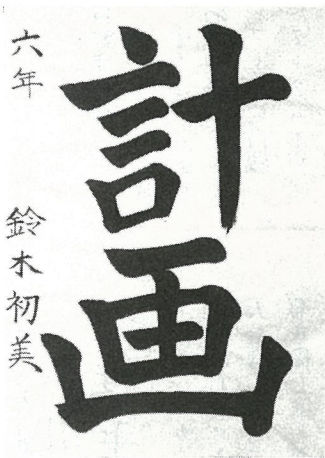 計画
六年 鈴木初美